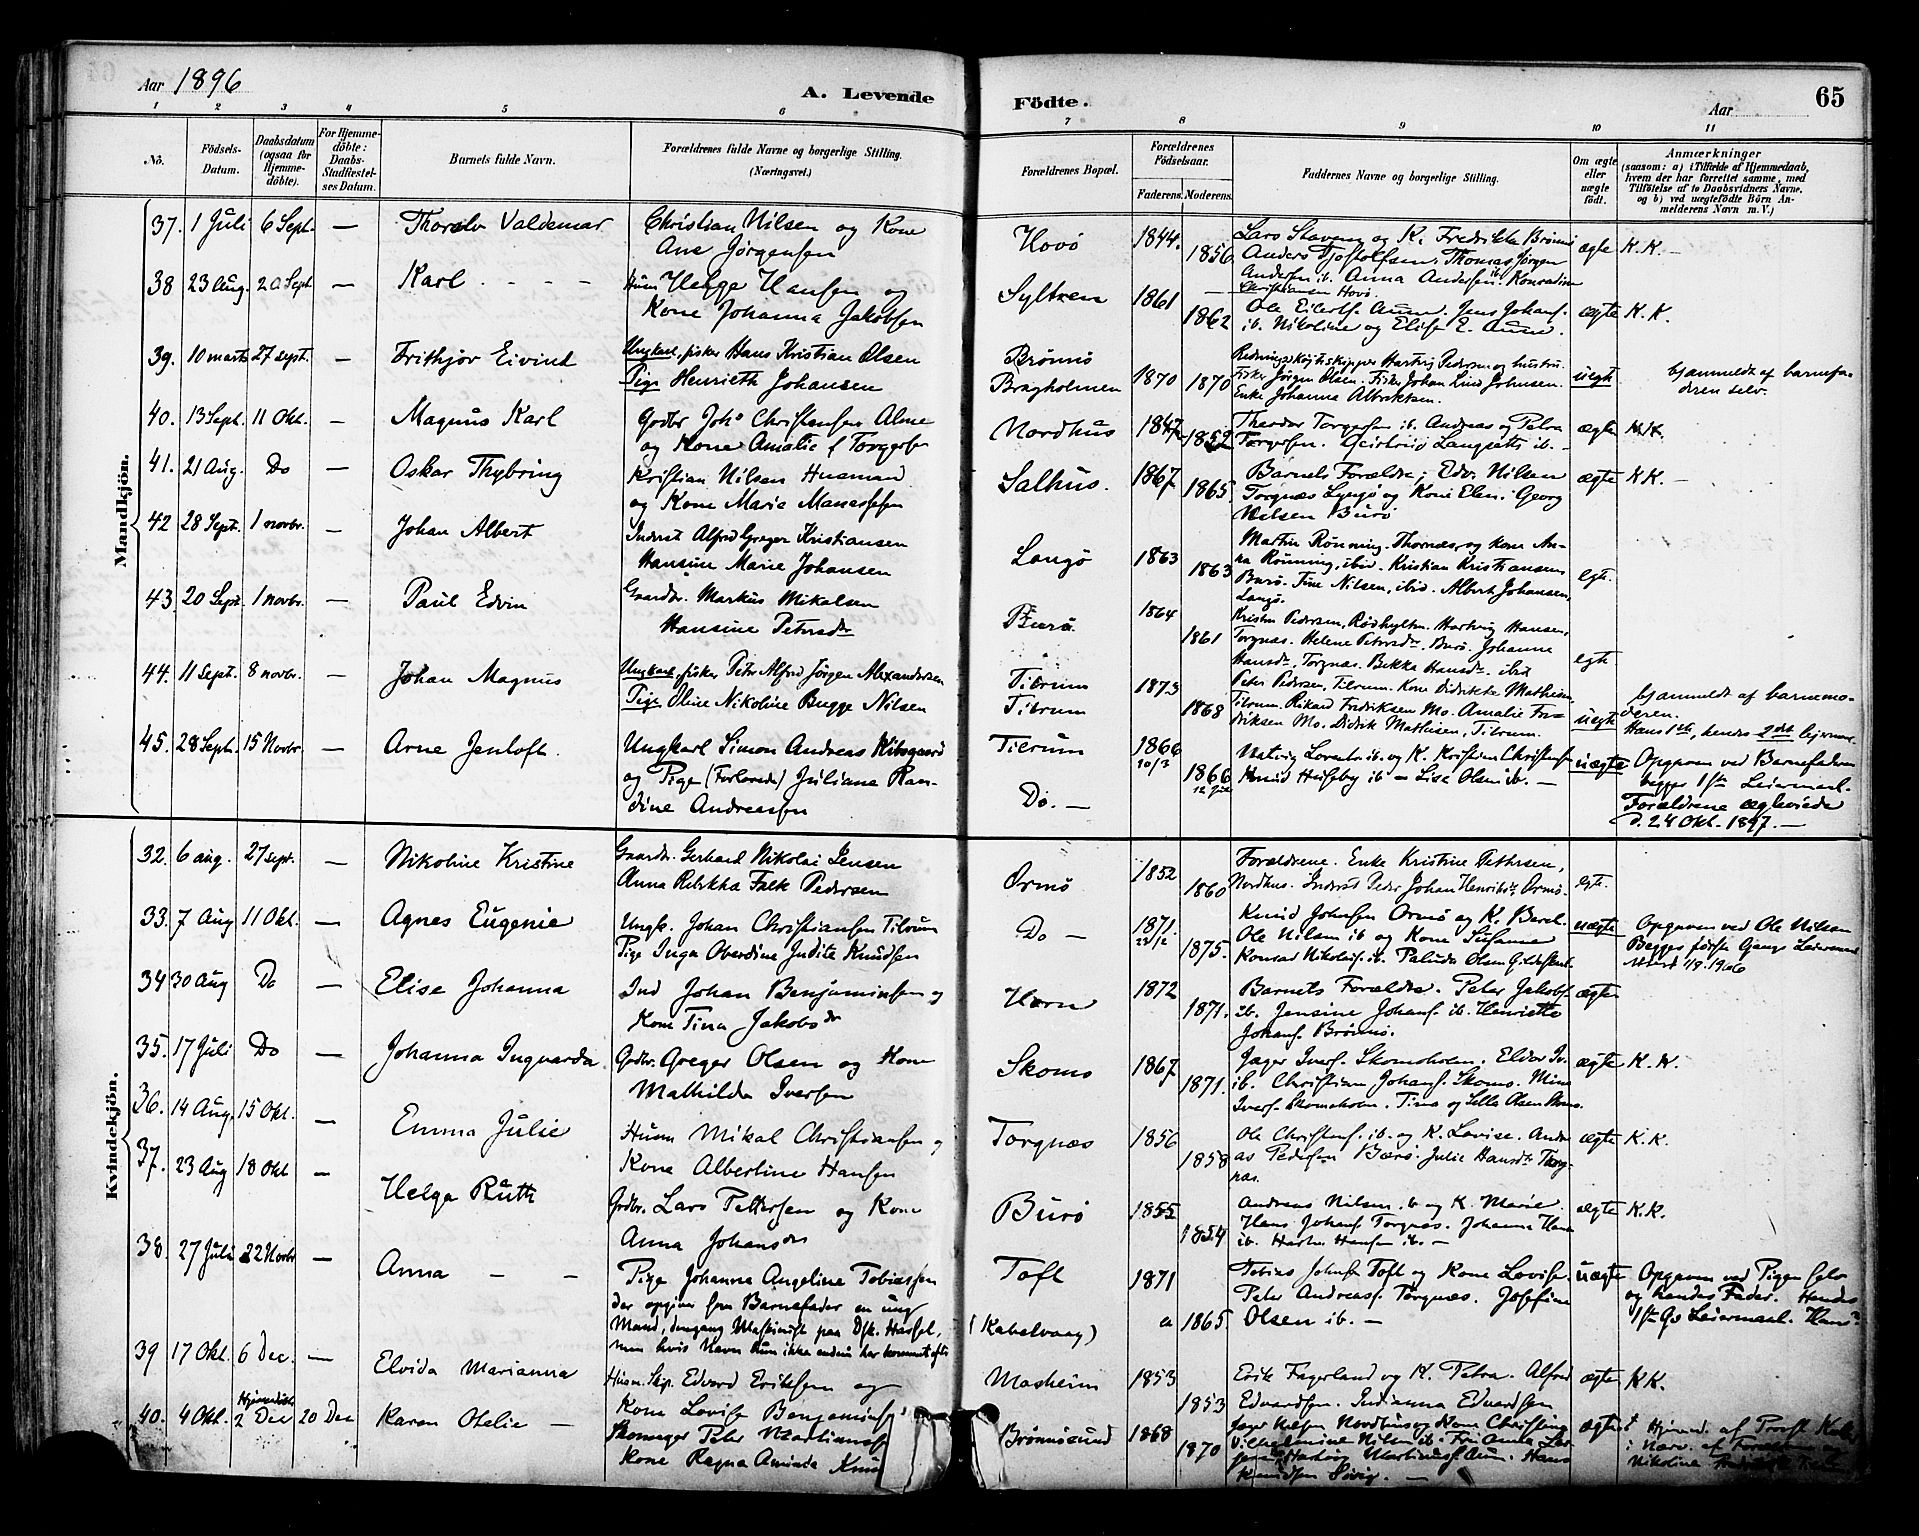 Aar 1896
A. Levende Födte.
Aar
65
1 2 3 4 5 6 7 8 9 10 11
No.
Födsels-Datum.
Daabsdatum (ogsaa for Hjemmedöbte).
For Hjemmedöbte: Daabs-Stadfestelses Datum.
Barnets fulde Navn.
Forældrenes fulde Navne og borgerlige Stilling. (Næringsvei.)
Forældrenes Bopæl.
Forældrenes Födselsaar.
Faderens. Moderens.
Faddernes Navne og borgerlige Stilling.
Om ægte eller uægte födt.
Anmærkninger
(saasom: a) i Tilfælde af Hjemmedaab,
hvem der har forrettet samme, med
Tilföielse af to Daabsvidners Navne,
og b) ved uegtefödte Börn Anmelderens Navn m. V.)
Mandkjön.
37. 1 Juli 6 Sept. — Thoralv Valdemar Christian Nilsen og Kone
Ane Jørgensen
Hovø 1844. 1856 Lars Staveng og K. Fredrikke Brønnø
Anders Tjostolfsen, Thomas Jørgen
Andersen ib. Anna Andersen ib. Konradine
Christiansen Hovø.
ægte K.K. —
38 23 Aug. 20 Sept — Karl Husm Helge Hansen og
Kone Johanna Jakobsen
Syltern 1861 1862 Ole Eilerts. Aune. Jens Johans.
ib. Nikoline og Elise E. Aune.
ægte K.K.
39. 10 marts 27 sept. — Frithjov Eivind Ungkarl, fisker Hans Kristian Olsen
Pige Henriette Johansen
Brønnø
1870 1870 Redningsskøitskipper Hartvig Pedersen og hustru.
Fisker Jørgen Olsen. Fisker Johan Lind Johnsen.
Enke Johanna Albriktsen.
uegte bjanmeldt af barnefaderen selv.
40. 13 Sept. 11 Okt. — Magnus Karl Gdbr Johs Christensen Alme
og Kone Amalie f Torgersen
Nordhus 1847 1852 Theodor Torgersen ib. Andreas og Petra
Torgersen.
ægte K.K.
41. 21 Aug. Do — Oskar Thybring Kristian Nilsen Husmand
og Kone Marie Manassesen
Salhus. 1867 1865 Barnets Forældre; Edv. Nilsen
Torgnæs Langø og Kone Elen. Georg
Nilsen Burø
ægte K.K. —
42 28 Sept. 1 novbr. — Johan Albert Inderst Alfred Greger Kristiansen
Hansine Marie Johansen
Langø 1863 1863 Martin Rønning. Thornæs, og kone Anna
Rønning, ibid. Kristian Kristiansen
Burø. Tine Nilsen, ibid. Albert Johansen,
Langø.
egte.
43. 20 Sept 1 novbr. — Paul Edvin Gaardbr. Markus Mikalsen
Hansine Petersdtr
Burø. 1864 1861 Kristen Pedersen, Rødhyltn. Hartvig Hansen,
Torgnæs. Helene Petersdtr, Burø. Johanne
Hansdtr, Torgnæs. Bekka Hansdtr. ibid
egte
44. 11 Sept. 8 novbr. — Johan Magnus Ungkarl, fisker Peter Alfred Jørgen Alexandersen
Pige Oline Nikoline Bugge Nilsen
Tilrum
Tilrum
1873 1868 Peter Pedersen, Tilrum. Kone Didrikke Mathisen,
Tilrum. Rikard Fredriksen Mo. Amalie Fredriksen
Mo. Didrik Mathisen, Tilrum.
uegte bjanmeldt af barnemoderen.
Hans 1ste, hendes 2det lejermaal.
45. 28 Sept. 15 Novbr. — Arne Jentoft Ungkarl Simon Andreas Kibsgaard
og Pige (Forlovede) Juliane Randine
Andreassen
Tilrum
Do. —
1866 10/3 1866 12 Juli Hartvig Lorentsen ib. og K. Kristine Christophersen
Knud Heiseby ib — Lise Olsen ib. —
uægte Opgaven ved Barnefaderen
begges 1ste Leiermaal.
Forældrene ægteviede
d. 24 Okt. 1897. —
Kvindekjön.
32. 6 aug. 27 sept. — Nikoline Kristine Gaardbr. Gerhard Nikolai Jensen
Anna Rebekka Falk Pedersen
Ormø 1852 1860 Forældrene. Enke Kristine Pettersen,
Nordhus. Inderst Peder Johan Henriksen Ormø.
egte.
33. 7 Aug 11 Okt. — Agnes Eugenie Ungk. Johan Christiansen Tilrum
Pige Inga Oberdine Judite Knudsen
Do — 1871. 23/12 1875. Knud Johnsen Ormø og K. Berel.
Ole Nilsen ib og Kone Susanne
Konrad Nikolais. ib. Paluda Olsen
uægte Opgaven ved Ole Nilsen
Begges første Gangs Leiermaal
34 30 Aug Do — Elise Johanna Ind Johan Benjaminsen og
Kone Tina Jakobsdr
Horn 1872 1871. Barnets Forældre. Peter Jakobs.
ib. Jensine Johans. ib. Henriette
Johans. Brønnø.
ægte
35. 17 Juli Do — Johanna Ingvarda Gdbr. Greger Olsen og Kone
Mathilda Iversen
Skoms 1867 1871. Jager Ivers. Skomsholm. Eldor Iv.
ib. Christian Johans. Skoms. Mina
Ivers. Skomsholm. Tina og Sella Olsen Skoms.
ægte K.K.
36. 14 Aug. 15 Okt. — Emma Julie Husm Mikal Christiansen og
Kone Albertine Hansen
Torgnæs 1856 1858 Ole Christens. ib. og K. Lovise. Andreas
Pedersen Bærø. Julie Hansdtr Torgnæs.
ægte K.K.
37. 23 Aug 18 Okt — Helga Ruth Gdbr. Lars Pettersen og Kone
Anna Johansdr
Burø 1855 1854 Andreas Nilsen ib og K. Marie.
Hans Johans. Torgnæs. Johanna Hans
ib. Hartv. Hansen ib. —
ægte K.K.
38. 27 Juli 22 Novbr — Anna — — Pige Johanna Angeline Tobiassen
der opgiver som Barnefader en ung
Mand, dengang Maskinist paa Dsk. Hassel,
men hvis Navn hun ikke endnu har kommet efter
Toft
(Kabelvaag)
1871 a 1865 Tobias Johnsen Toft og Kone Lovise.
Peter Andreas. Torgnæs. Josefine
Olsen ib. —
uægte Opgaven ved Pigen selv
og hendes Fader. Hendes
1ste Gs Leiermaal. Hans?
39 17 Okt. 6 Dec. — Elvida Marianna Husm. Skp. Edvard Eriksen og
Kone Lovise Benjamins.
Masheim 1853 1853 Erik Fagerland og K. Petra. Alfred
Edvardsen. Indianna Edvardsen
ægte K.K.
40. 4 Okt. Hjemmedøbt 2 Dec 20 Dec Karen Otelie — Skomager Peter Martinus.
Kone Ragna Aminda Knud
Brønnøsund 1868 1870 Jager Nilsen Nordhus og Kone Christine
Vilhelmine Nilsen ib. Frk Anna
Hartvig Martinus. Aun. Hans
Knudsen Søvig. —
ægte Hjemmed. af Provst
i Nærv. af Forældrene og
Nikoline